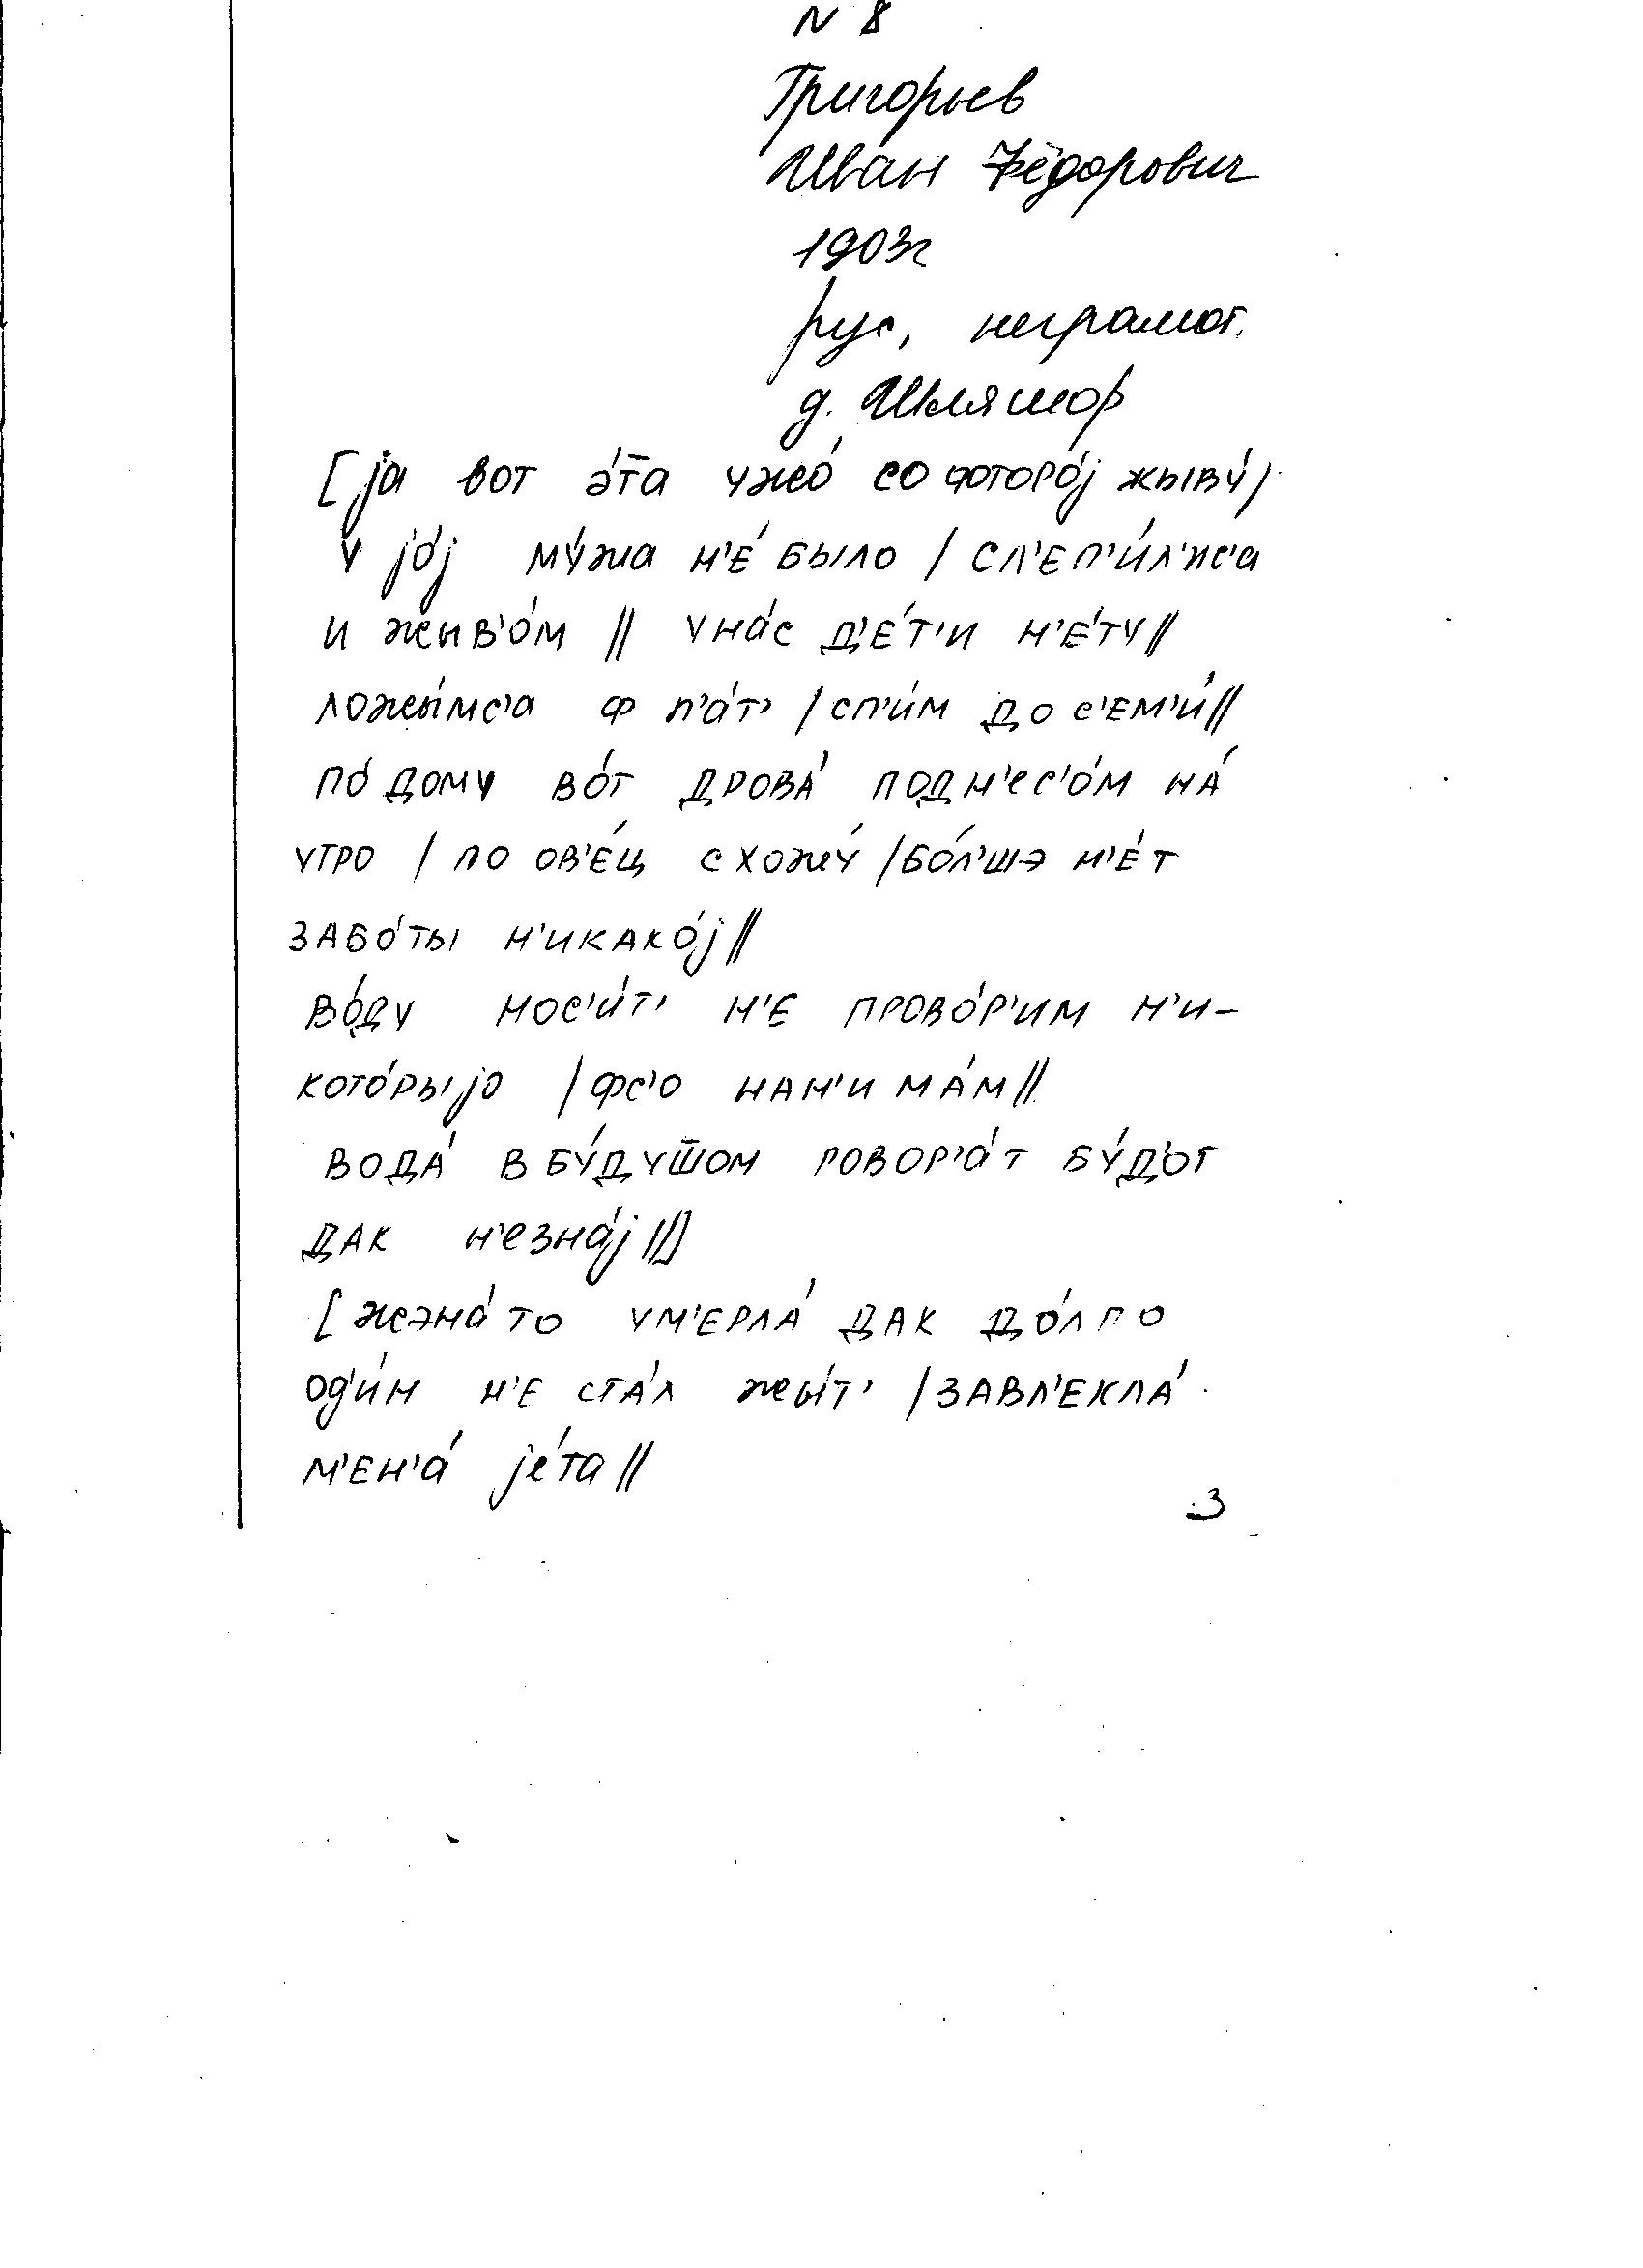 N 8
Григорьев
Иван Фёдорович
1903г
рус, неграмот.
д. Шляшор
[jа вот э́та ужо́ со фоторо́j жыву́/
у jо́j му́жа н'е́ было / сл'еп'и́л'ис'а
и жыв'о́м // у на́с д'е́т'и н'е́ту //
ложы́мс'а ф п'а́т' / сп'и́м до с'ем'и́ //
по́ дому во́т дрова́ подн'ес'о́м на́
утро / по ов'е́ц схожу́ / бо́л'шэ н'е́т
забо́ты н'икако́j //
во́ду нос'и́т' н'е прово́р'им н'и-
кото́рыjо / фс'о нан'има́м //
вода́ в бу́душ̅ом говор'а́т бу́д'от
дак н'е зна́j //]
[жэна́ то ум'ерла́ дак до́лго
од'и́н н'е ста́л жы́т' / завл'екла́
м'ен'а́ jе́та //
3